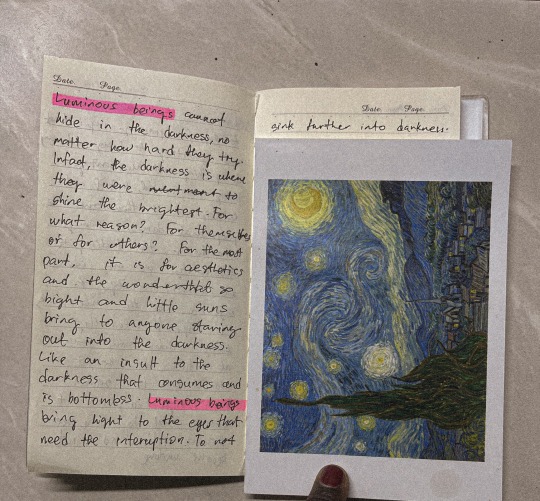 Date. Page.
Luminous beings cannot
hide in the darkness, no
matter how hard they try.
Infact, the darkness is where
they were meant to
shine the brightest. For
what reason? For themselves
or for others? For the most
part, it is for aesthetics
and the wonder that so
bight and little suns
bring to anyone staring
out into the darkness.
Like an insult to the
darkness that consumes and
is bottomlss. Luminous beings
bring light to the eyes that
need the interuption. To not
Date. Page.
sink further into darkness.